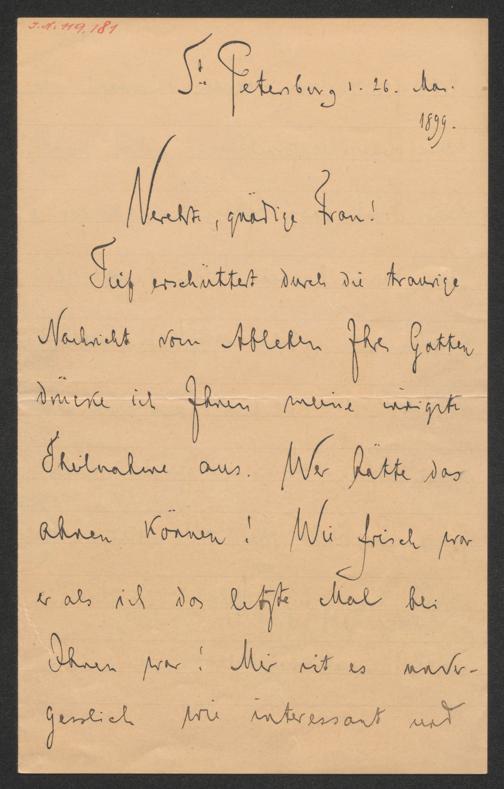 I.N. 119.181
St. Petersburg 1. 26. Mai.
1899.
Verehrte, gnädige Frau!
Tief erschüttert durch die traurige
Nachricht vom Ableben Ihres Gatten
drücke ich Ihnen meine innigste
Theilnahme aus. Wer hätte das
ahnen können! Wie frisch war
er als ich das letzte Mal bei
Ihnen war! Mir ist es unver-
gesslich wie interessant und